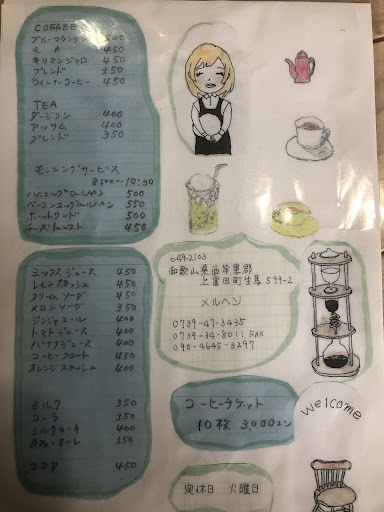 COFFEE
ブルーマウンテン 500
モカ 450
キリマンジャロ 450
ブレンド 350
ウィンナーコーヒー 450
TEA
ダージリン 400
アッサム 400
ブレンド 350
モーニングサービス
8:00〜10:30
ハムエッグロールパン 500
ベーコンエッグロールパン 550
ホットサンド 500
チーズトースト 450
ミックスジュース 450
レモンスカッシュ 450
クリームソーダ 450
メロンソーダ 350
ジンジャエール 400
トマトジュース 400
バナナジュース 400
コーヒーフロート 450
オレンジスカッシュ 450
ミルク 350
コーラ 350
ミルクセーキ 400
カフェ・オーレ 350
ココア 450
649-2103
和歌山県西牟婁郡
上富田町生馬599-2
メルヘン
0739-47-3435
0739-34-8011 FAX
090-4645-3297
コーヒーチケット
10枚 3,000エン
welcome
定休日 火曜日